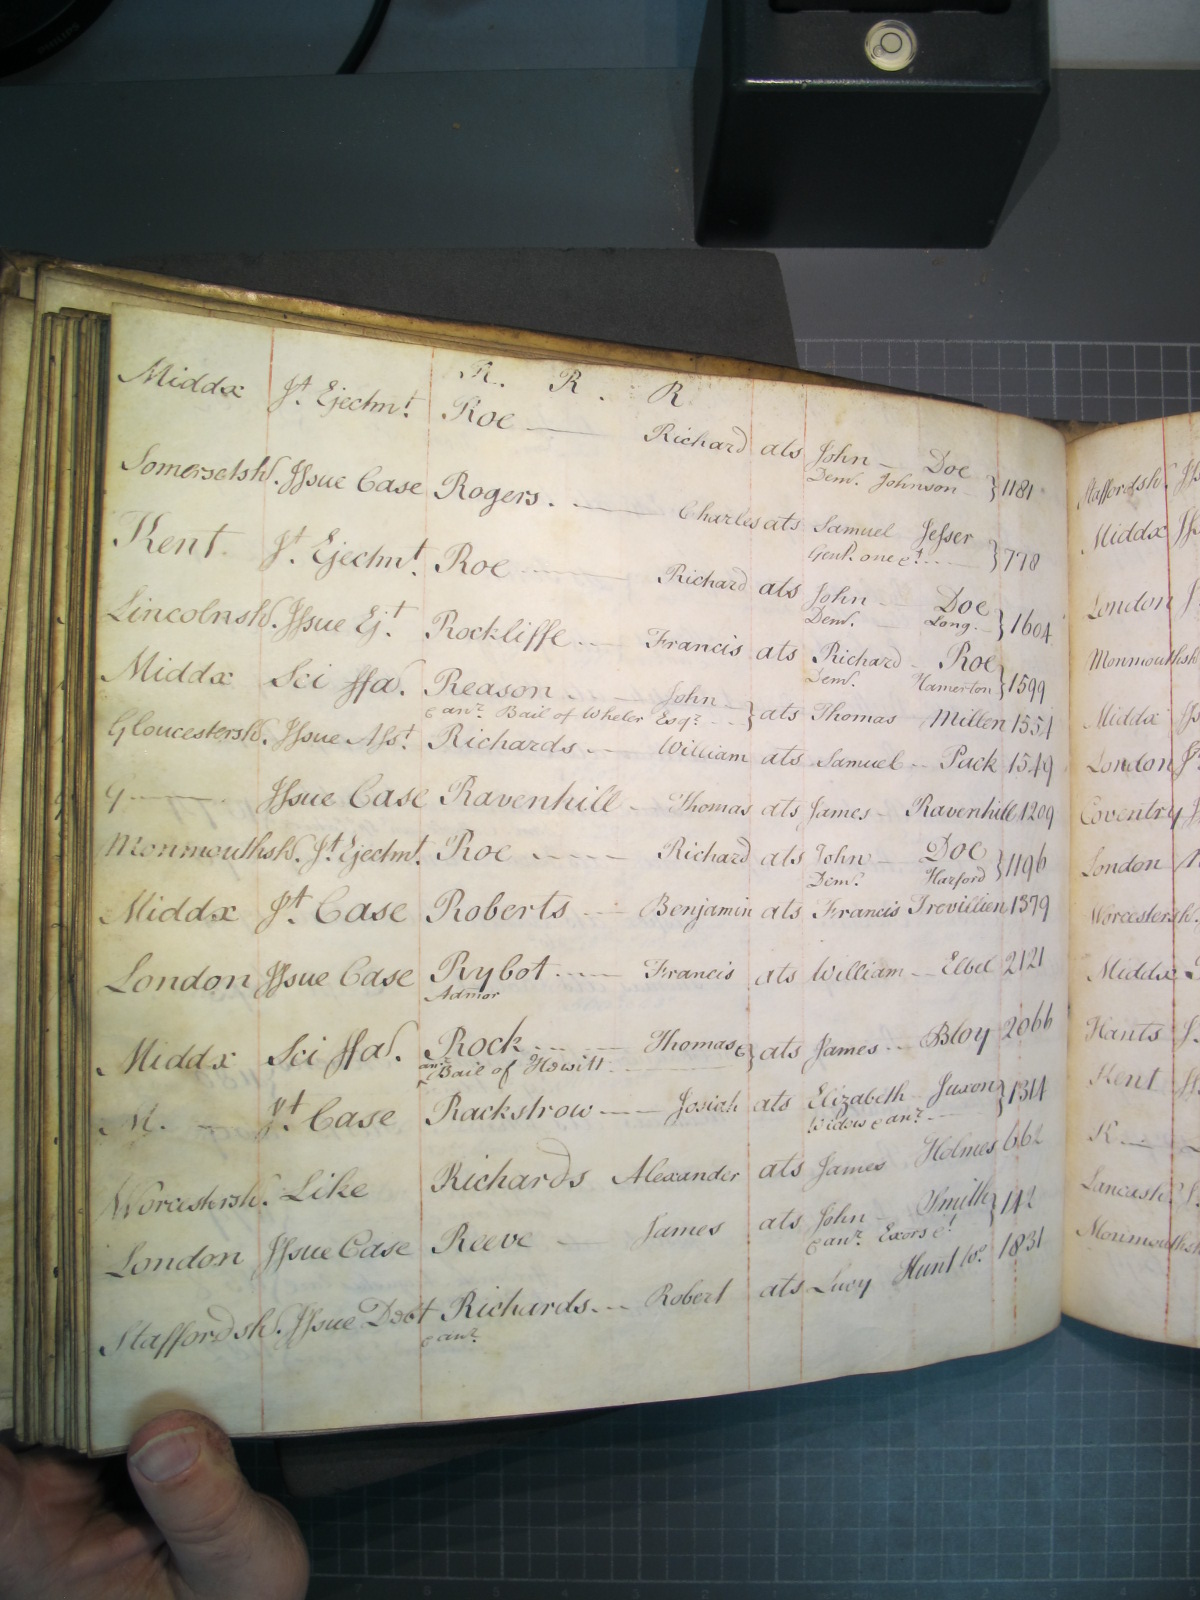 R. R. R
Middx Jt. Ejectmt. Roe Richard ats John Doe } 1181
Dem. Johnson
Somersetsh. Issue Case Rogers. Charles ats Samuel Jesser } 778
Gent. one &c.
Kent Jt. Ejectmt. Roe Richard ats John Doe } 1604
Dem. Long.
Lincolnsh. Issue Ejt. Rockliffe Francis ats Richard Roe } 1599
Dem. Hamerton
Middx Sci ffa. Reason John } ats Thomas Millen 1551
& anr. Bail of Wheler Esqr.
Gloucestersh. Issue Asst. Richards William ats Samuel Pack 1549
G Issue Case Ravenhill Thomas ats James Ravenhill 1209
Monmouthsh. Jt. Ejectmt. Roe Richard ats John Doe } 1196
Dem. Harford
Middx Jt. Case Roberts Benjamin ats Francis Trevillien 1579
London Issue Case Rybot Francis ats William Elbel 2121
Admor
Middx Sci ffa. Rock Thomas & } ats James Bloy 2066
anr. Bail of Hewitt
M. Jt. Case Rackstrow Josiah ats Elizabeth Juxon } 1314
Widow & anr.
Worcestersh. Like Richards Alexander ats James Holmes 662
London Issue Case Reeve James ats John Smith } 142
& anr. Exors &c.
Staffordsh. Issue Debt Richards Robert ats Lucy Hunt Wo. 1831
& anr.
Staffordsh.
Middx
London
Monmouthsh
Middx
London
Coventry
London
Worcestersh.
Middx
Hants
Kent
K
Lancash.
Monmouthsh